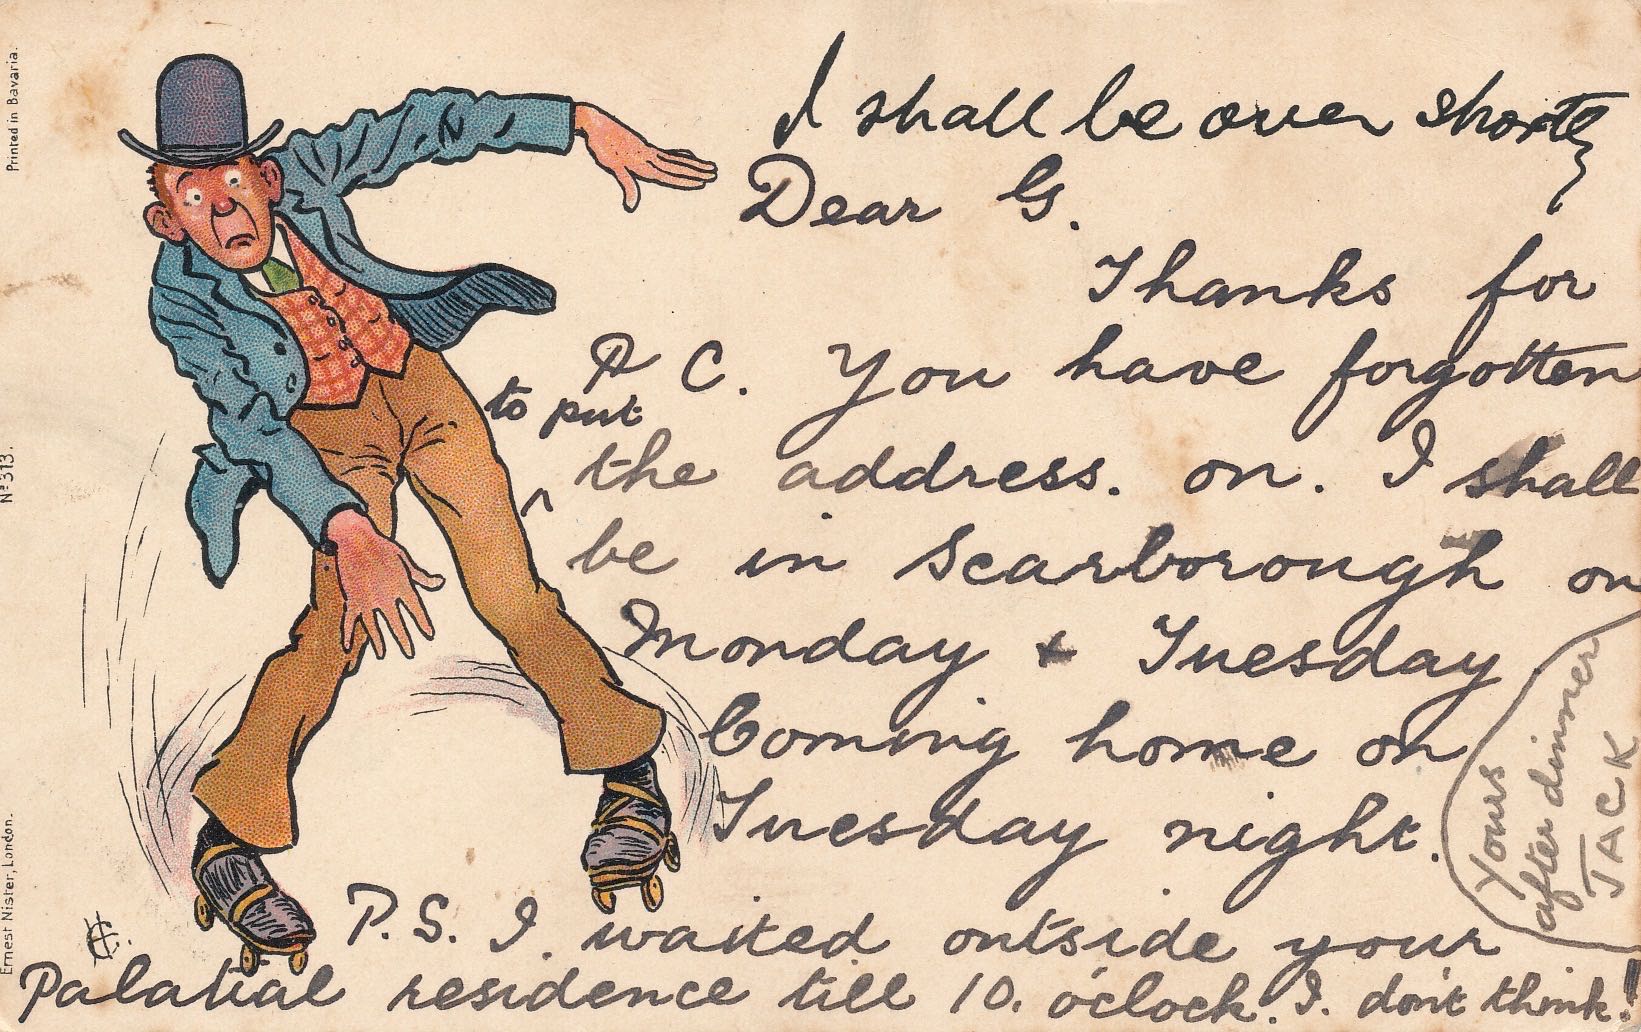 I shall be over shortly
Dear G.
Thanks for
P C. You have forgotten
to put
^ the address. on. I shall
be in Scarborough on
Monday + Tuesday
Coming home on
Tuesday night.
Yours
after dinner
JACK
P.S. I. waited outside your
Palatial residence till 10. o'clock! I. don't think!!
Printed in Bavaria.
Nº 313.
Ernest Nister, London.